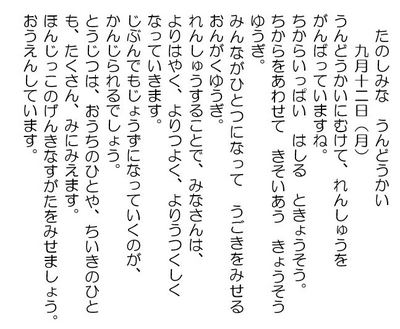 たのしみな　うんどうかい
九月十二日（月）
うんどうかいにむけて、れんしゅうを
がんばっていますね。
ちからいっぱい　はしる　ときょうそう。
ちからをあわせて　きそいあう　きょうそう
ゆうぎ。
みんながひとつになって　うごきをみせる
おんがくゆうぎ。
れんしゅうすることで、みなさんは、
よりはやく、よりつよく、よりうつくしく
なっていきます。
じぶんでもじょうずになっていくのが、
かんじられるでしょう。
とうじつは、おうちのひとや、ちいきのひと
も、たくさん、みにみえます。
ほんじっこのげんきなすがたをみせましょう。
おうえんしています。